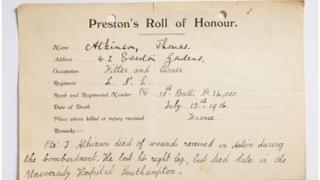 Preston's Roll of Honour.
Name Atkinson, Thomas.
Address 42 Everton Gardens,
Occupation Fitter and Turner
Regiment L. N. L.
Rank and Regimental Number Pte 10th Battn No 14,000.
Date of Death July 15th 1916.
Place where killed or injury received France.
Remarks:-
Pte. T. Atkinson died of wounds received in Action during
the bombardment. He lost his right leg, but died later in the
University Hospital Southampton.